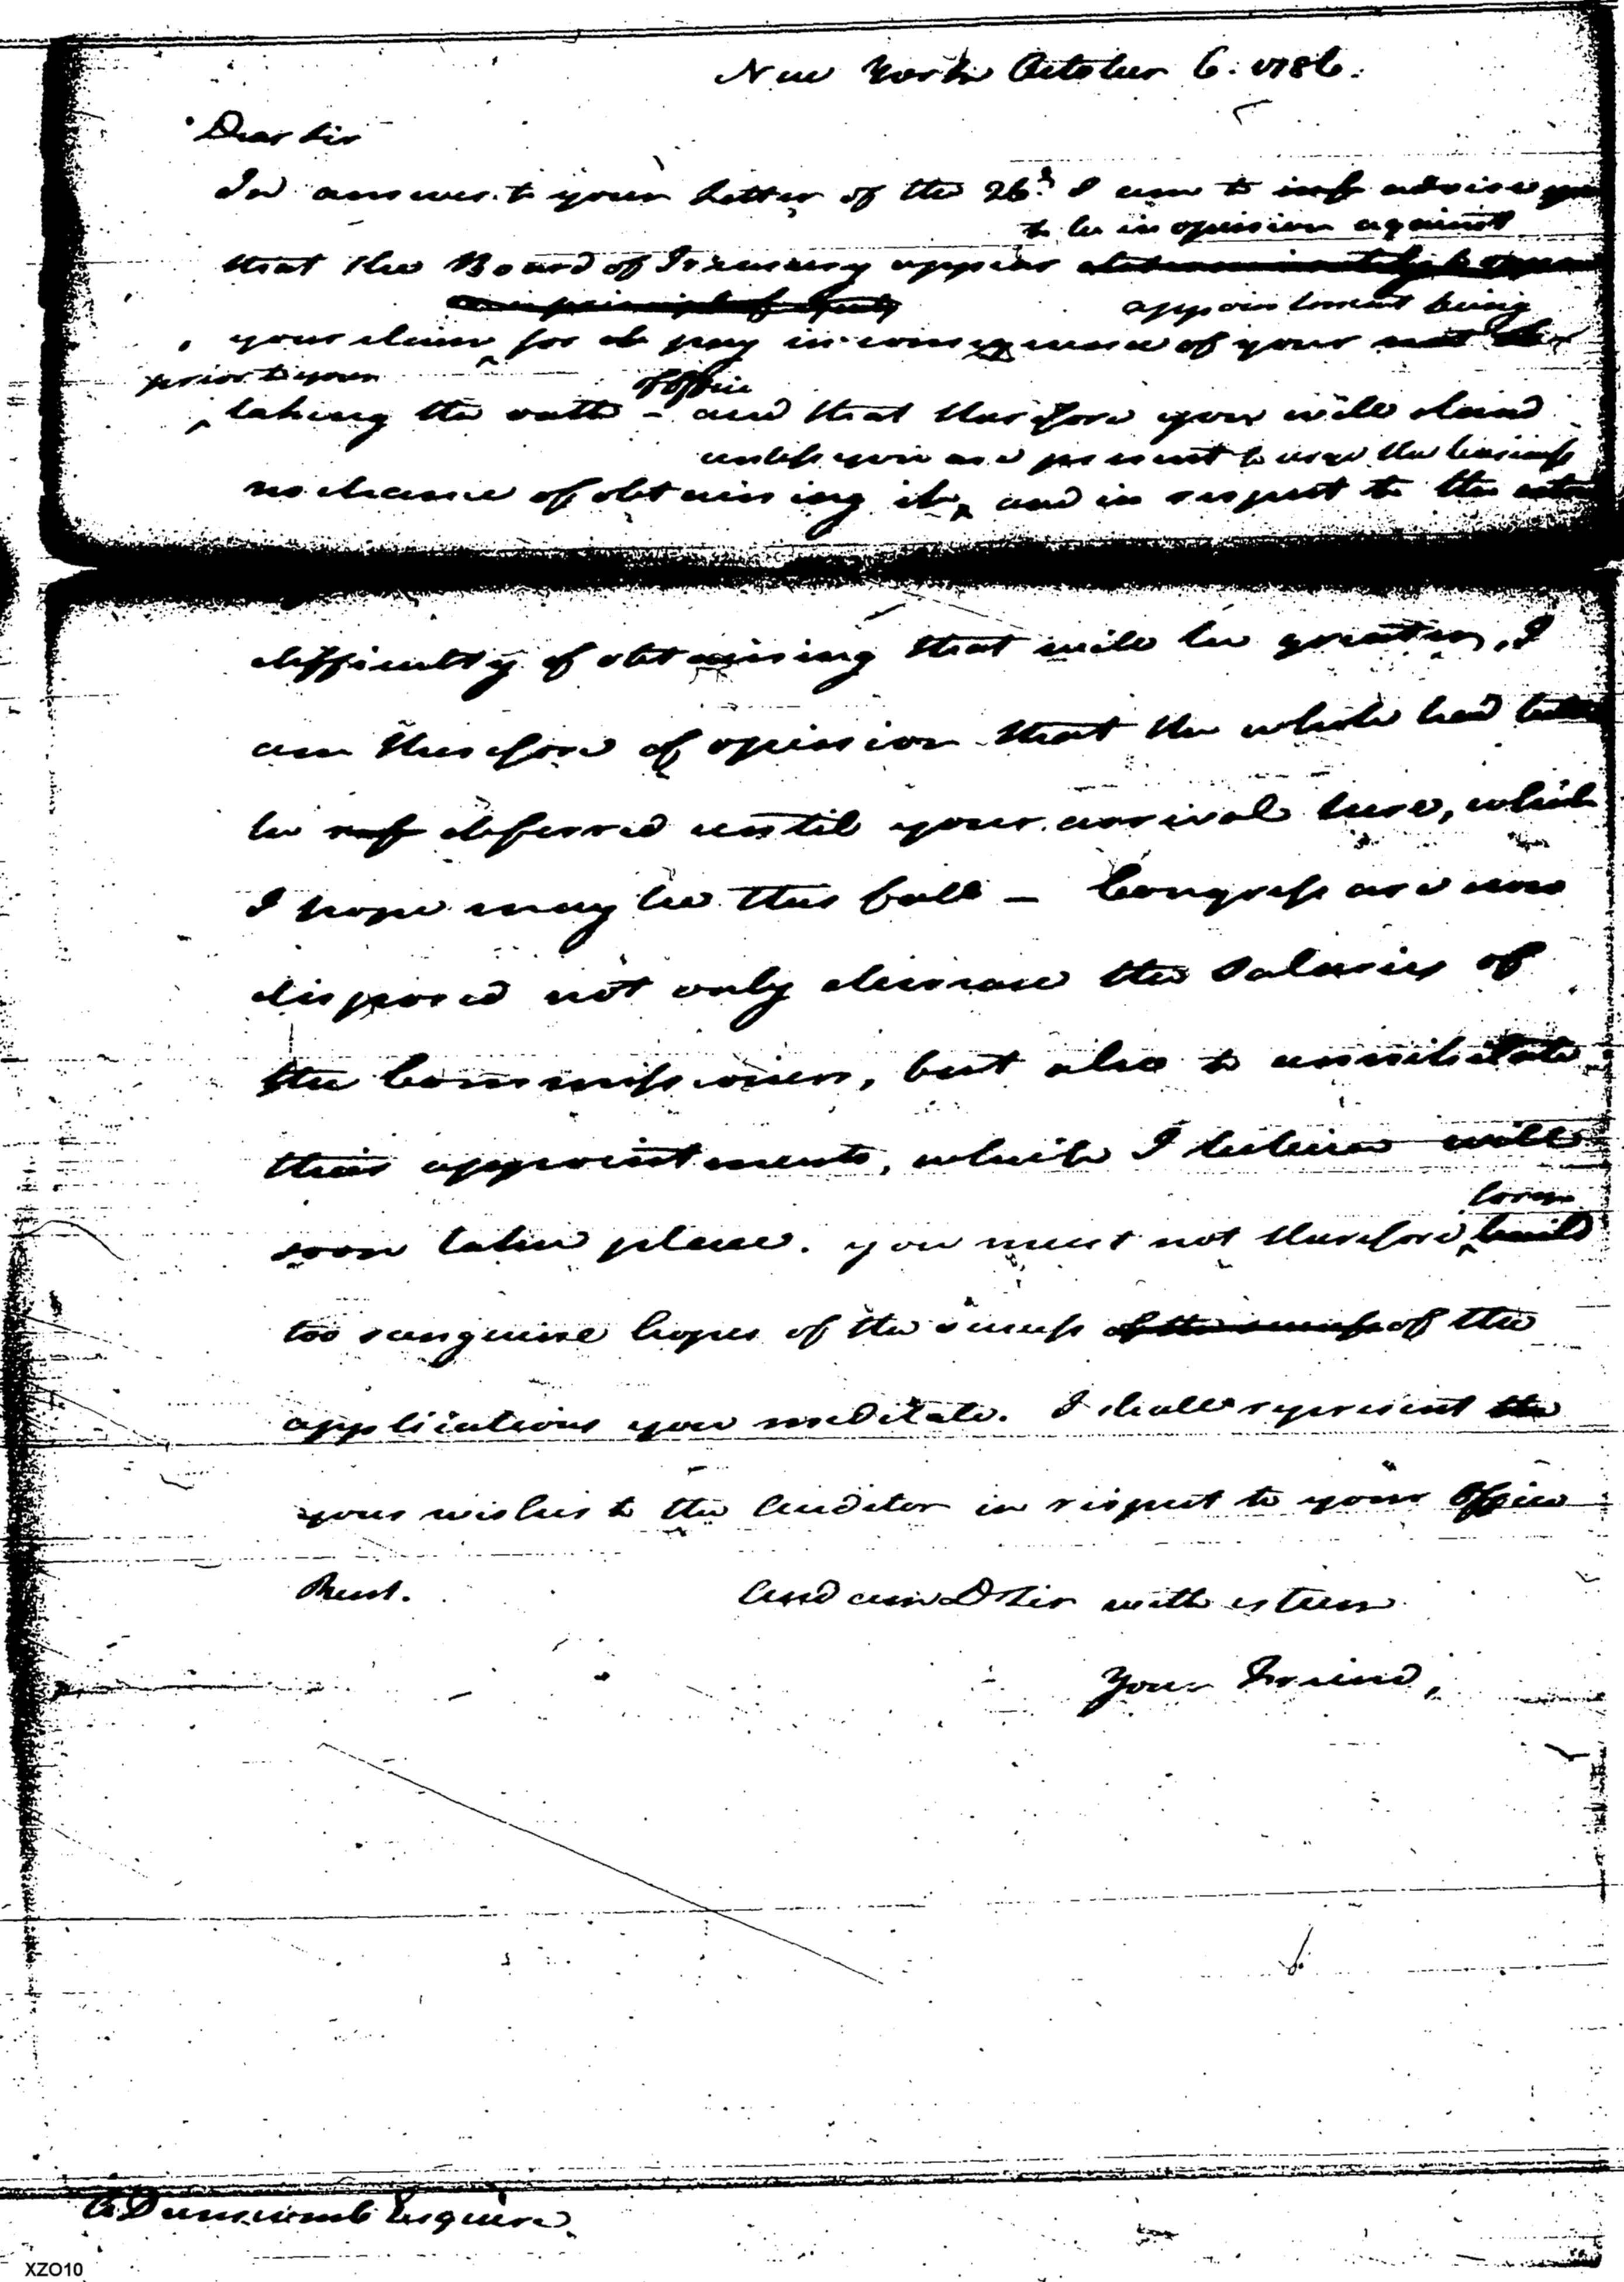 New York October 6. 1786.
Dear Sir
In answer to your Letter of the 26.th I am to inf advise you
to be in opinion against
that the Board of Treasury appear determinately to oppose
on a principle of
appointment being
your claim for pay in consequence of your not
prior to your
of office
taking the oath – and that therefore you will stand
unless you are present to urge the business
no chance of obtaining it, and in respect to the
difficulty of obtaining that will be greater, I
am therefore of opinion that the whole had better
be deferred until your arrival here, which
I hope may be this fall – Congress are now
disposed not only decrease the Salaries of
the Commissioners, but also to annihilate
their appointments, which I believe will
soon take place. you must not therefore build
form
too sanguine hopes of the success of the success of the
applications you meditate. I shall represent the
your wishes to the Auditor in respect to your Office
Rent. And am D Sir with esteem
Your Friend,
Dunscomb Esquire
XZO10